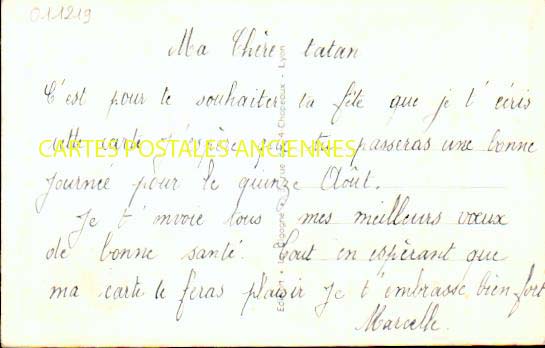 011219
Ma Chère tatan
C'est pour te souhaiter ta fête que je t'écris
cette carte j'espère que tu passeras une bonne
CARTES POSTALES ANCIENNES
journée pour le quinze Août.
Je t'envoie tous mes meilleurs vœux
de bonne santé. Tout en espérant que
ma carte te feras plaisir Je t'embrasse bien fort
Marcelle.
4 Chapeaux - Lyon